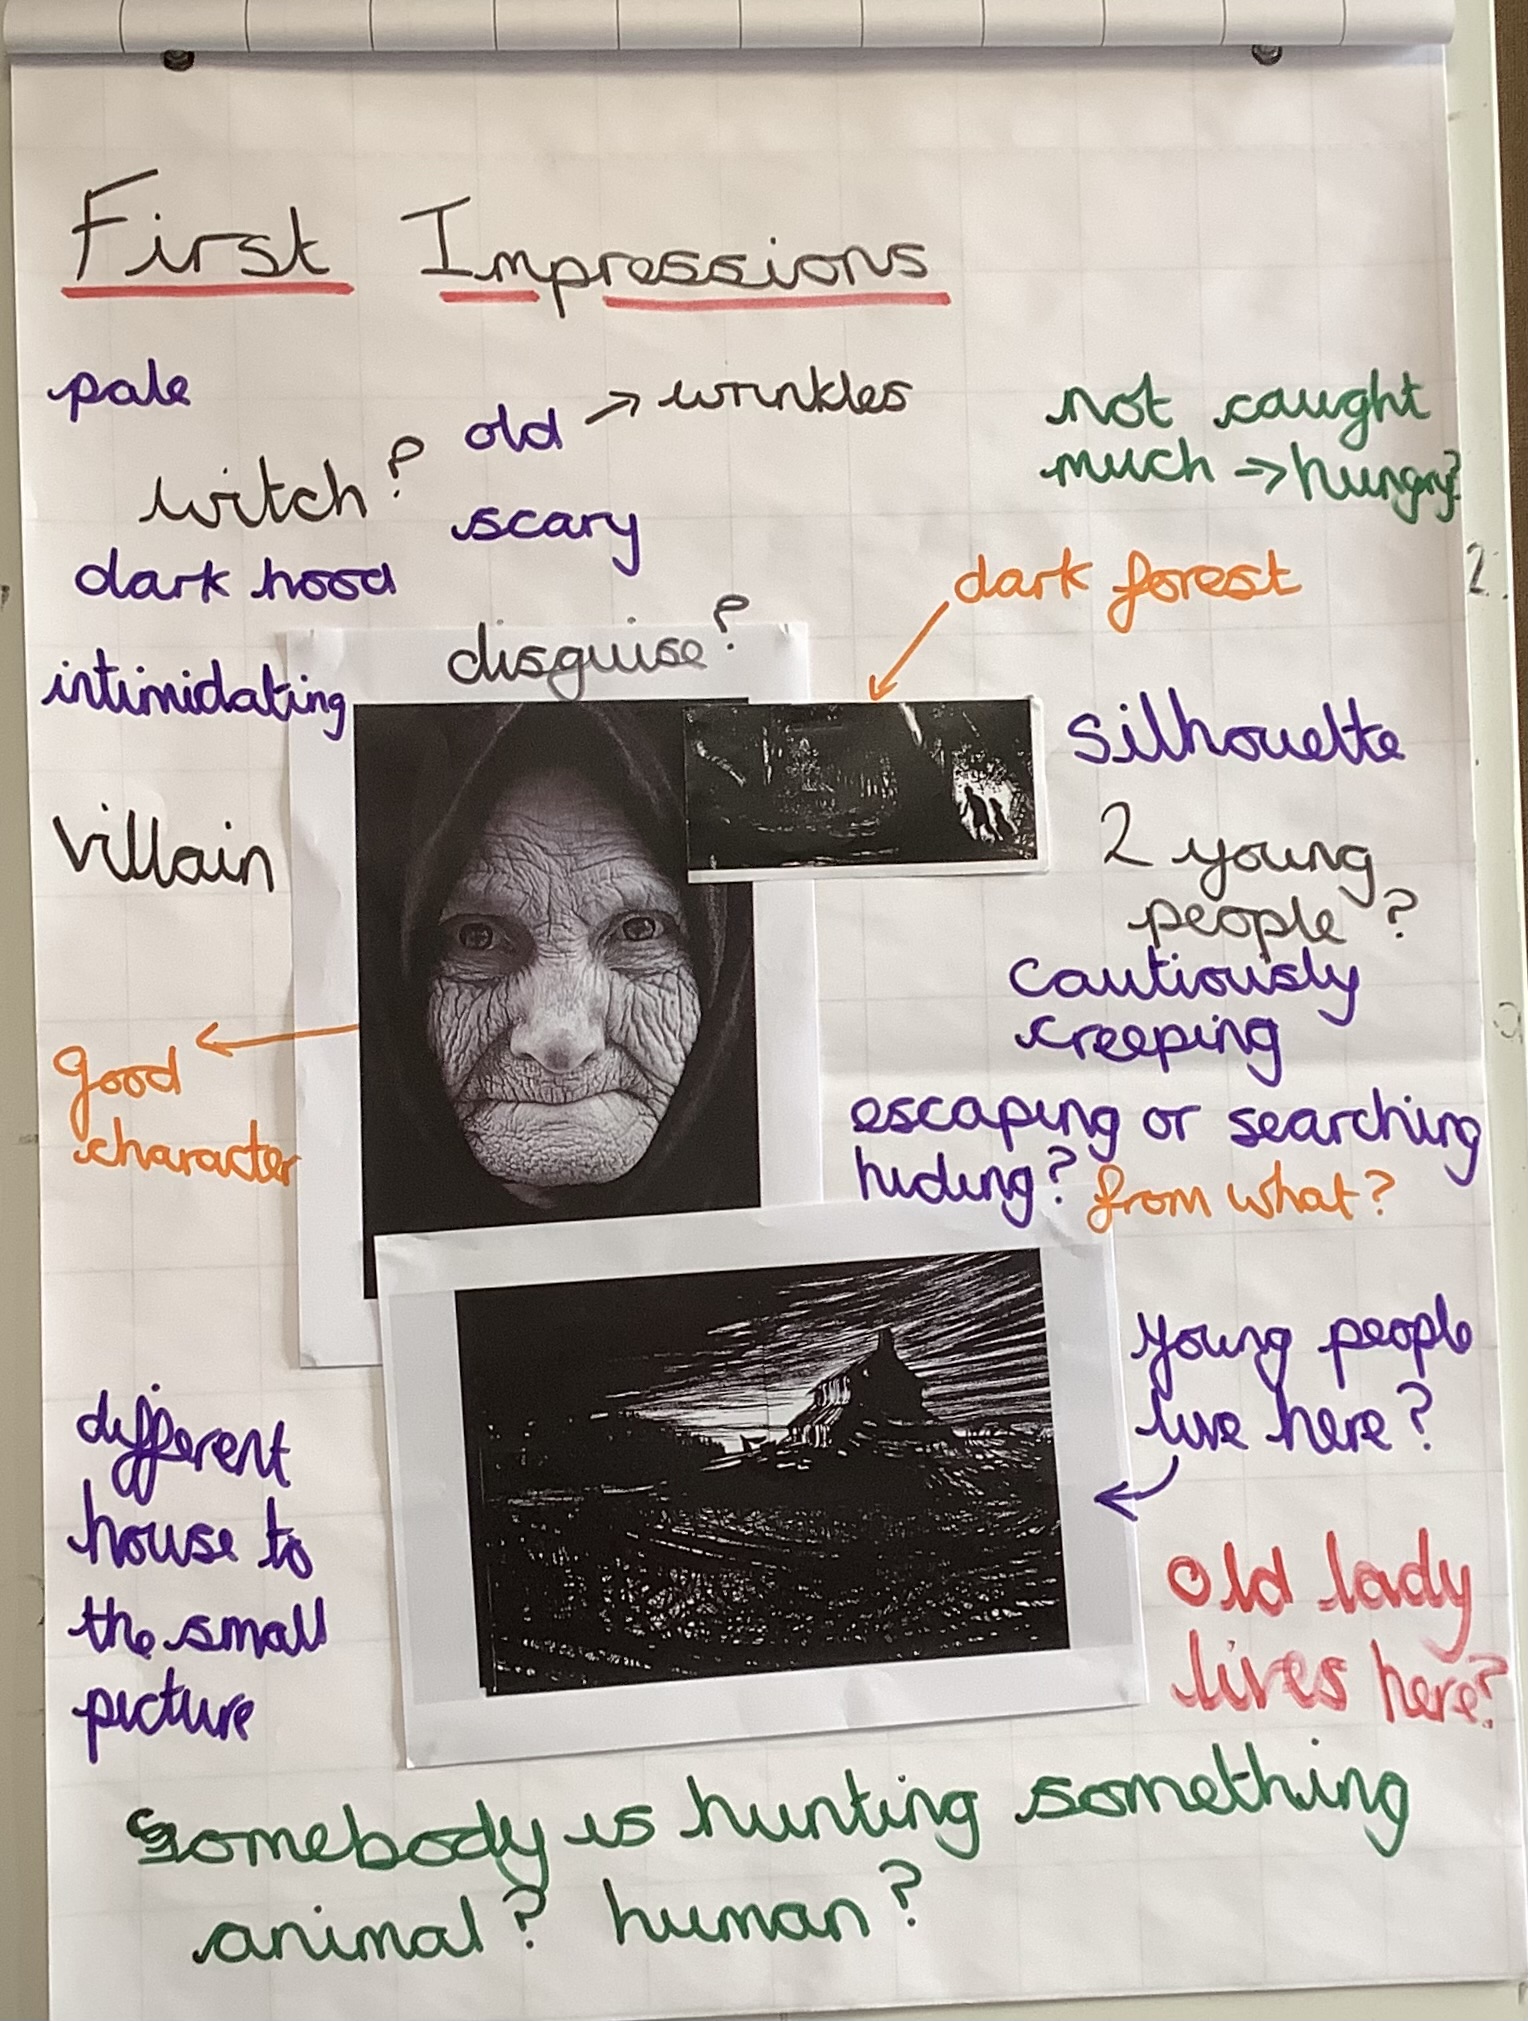 First Impressions
pale
old → wrinkles
not caught
much → hungry?
witch?
scary
dark hood
dark forest
disguise?
intimidating
silhouette
villain
2 young
people?
cautiously
creeping
good
character
escaping or searching
hiding? from what?
young people
live here?
different
house to
the small
picture
old lady
lives here?
Somebody is hunting something
animal? human?